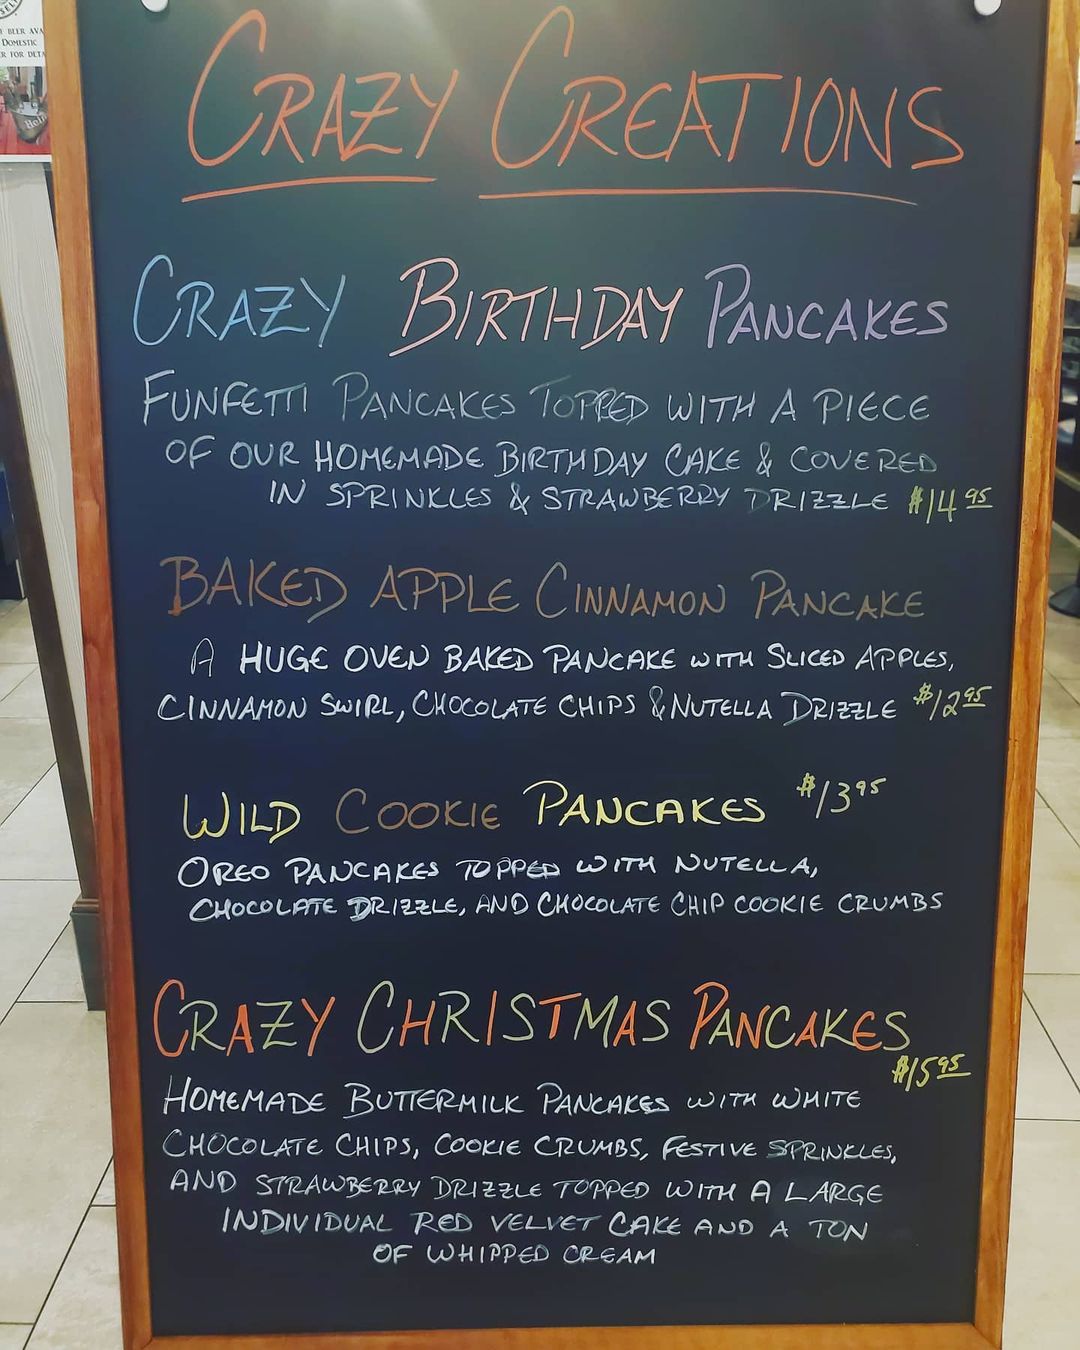 BEER AVA
DOMESTIC
FOR DETA
CRAZY CREATIONS
CRAZY BIRTHDAY PANCAKES
FUNFETTI PANCAKES TOPPED WITH A PIECE
OF OUR HOMEMADE BIRTHDAY CAKE & COVERED
IN SPRINKLES & STRAWBERRY DRIZZLE $14 95
BAKED APPLE CINNAMON PANCAKE
A HUGE OVEN BAKED PANCAKE WITH SLICED APPLES,
CINNAMON SWIRL, CHOCOLATE CHIPS & NUTELLA DRIZZLE $12 95
WILD COOKIE PANCAKES $13 95
OREO PANCAKES TOPPED WITH NUTELLA,
CHOCOLATE DRIZZLE, AND CHOCOLATE CHIP COOKIE CRUMBS
CRAZY CHRISTMAS PANCAKES
$15 95
HOMEMADE BUTTERMILK PANCAKES WITH WHITE
CHOCOLATE CHIPS, COOKIE CRUMBS, FESTIVE SPRINKLES,
AND STRAWBERRY DRIZZLE TOPPED WITH A LARGE
INDIVIDUAL RED VELVET CAKE AND A TON
OF WHIPPED CREAM